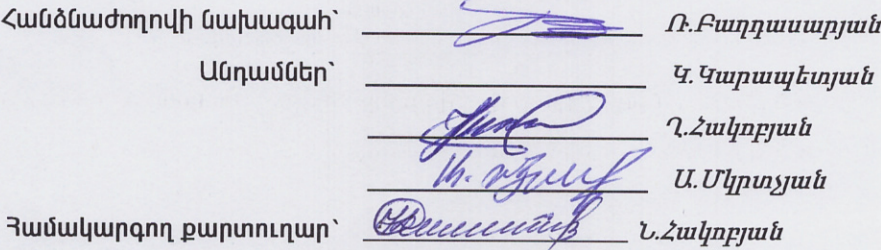 Հանձնաժողովի նախագահ՝ Ռ.Բաղդասարյան
Անդամներ՝ Կ.Կարապետյան
Ղ.Հակոբյան
Ա.Մկրտչյան
Համակարգող քարտուղար՝ Ն.Հակոբյան